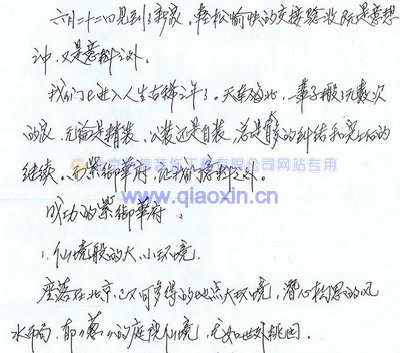 六月二十二日见到了新家，轻松愉快的交接验收既是意想
之中，又是意料之外。
我们已进入人生古稀之年了。天南海北，一辈子搬了无数次
的家，无论是精装，公装还是自装，总是有多的纠结和
继续。而紫御华府，让我们意料之外。
网站专用
www.qiaoxin.cn
成功的紫御华府：
1.仙境般的大小环境。
座落在北京，这不可多得的地点大环境，潜心构思的风
水布局，郁郁葱葱的庭院仙境，尤如世外桃园。